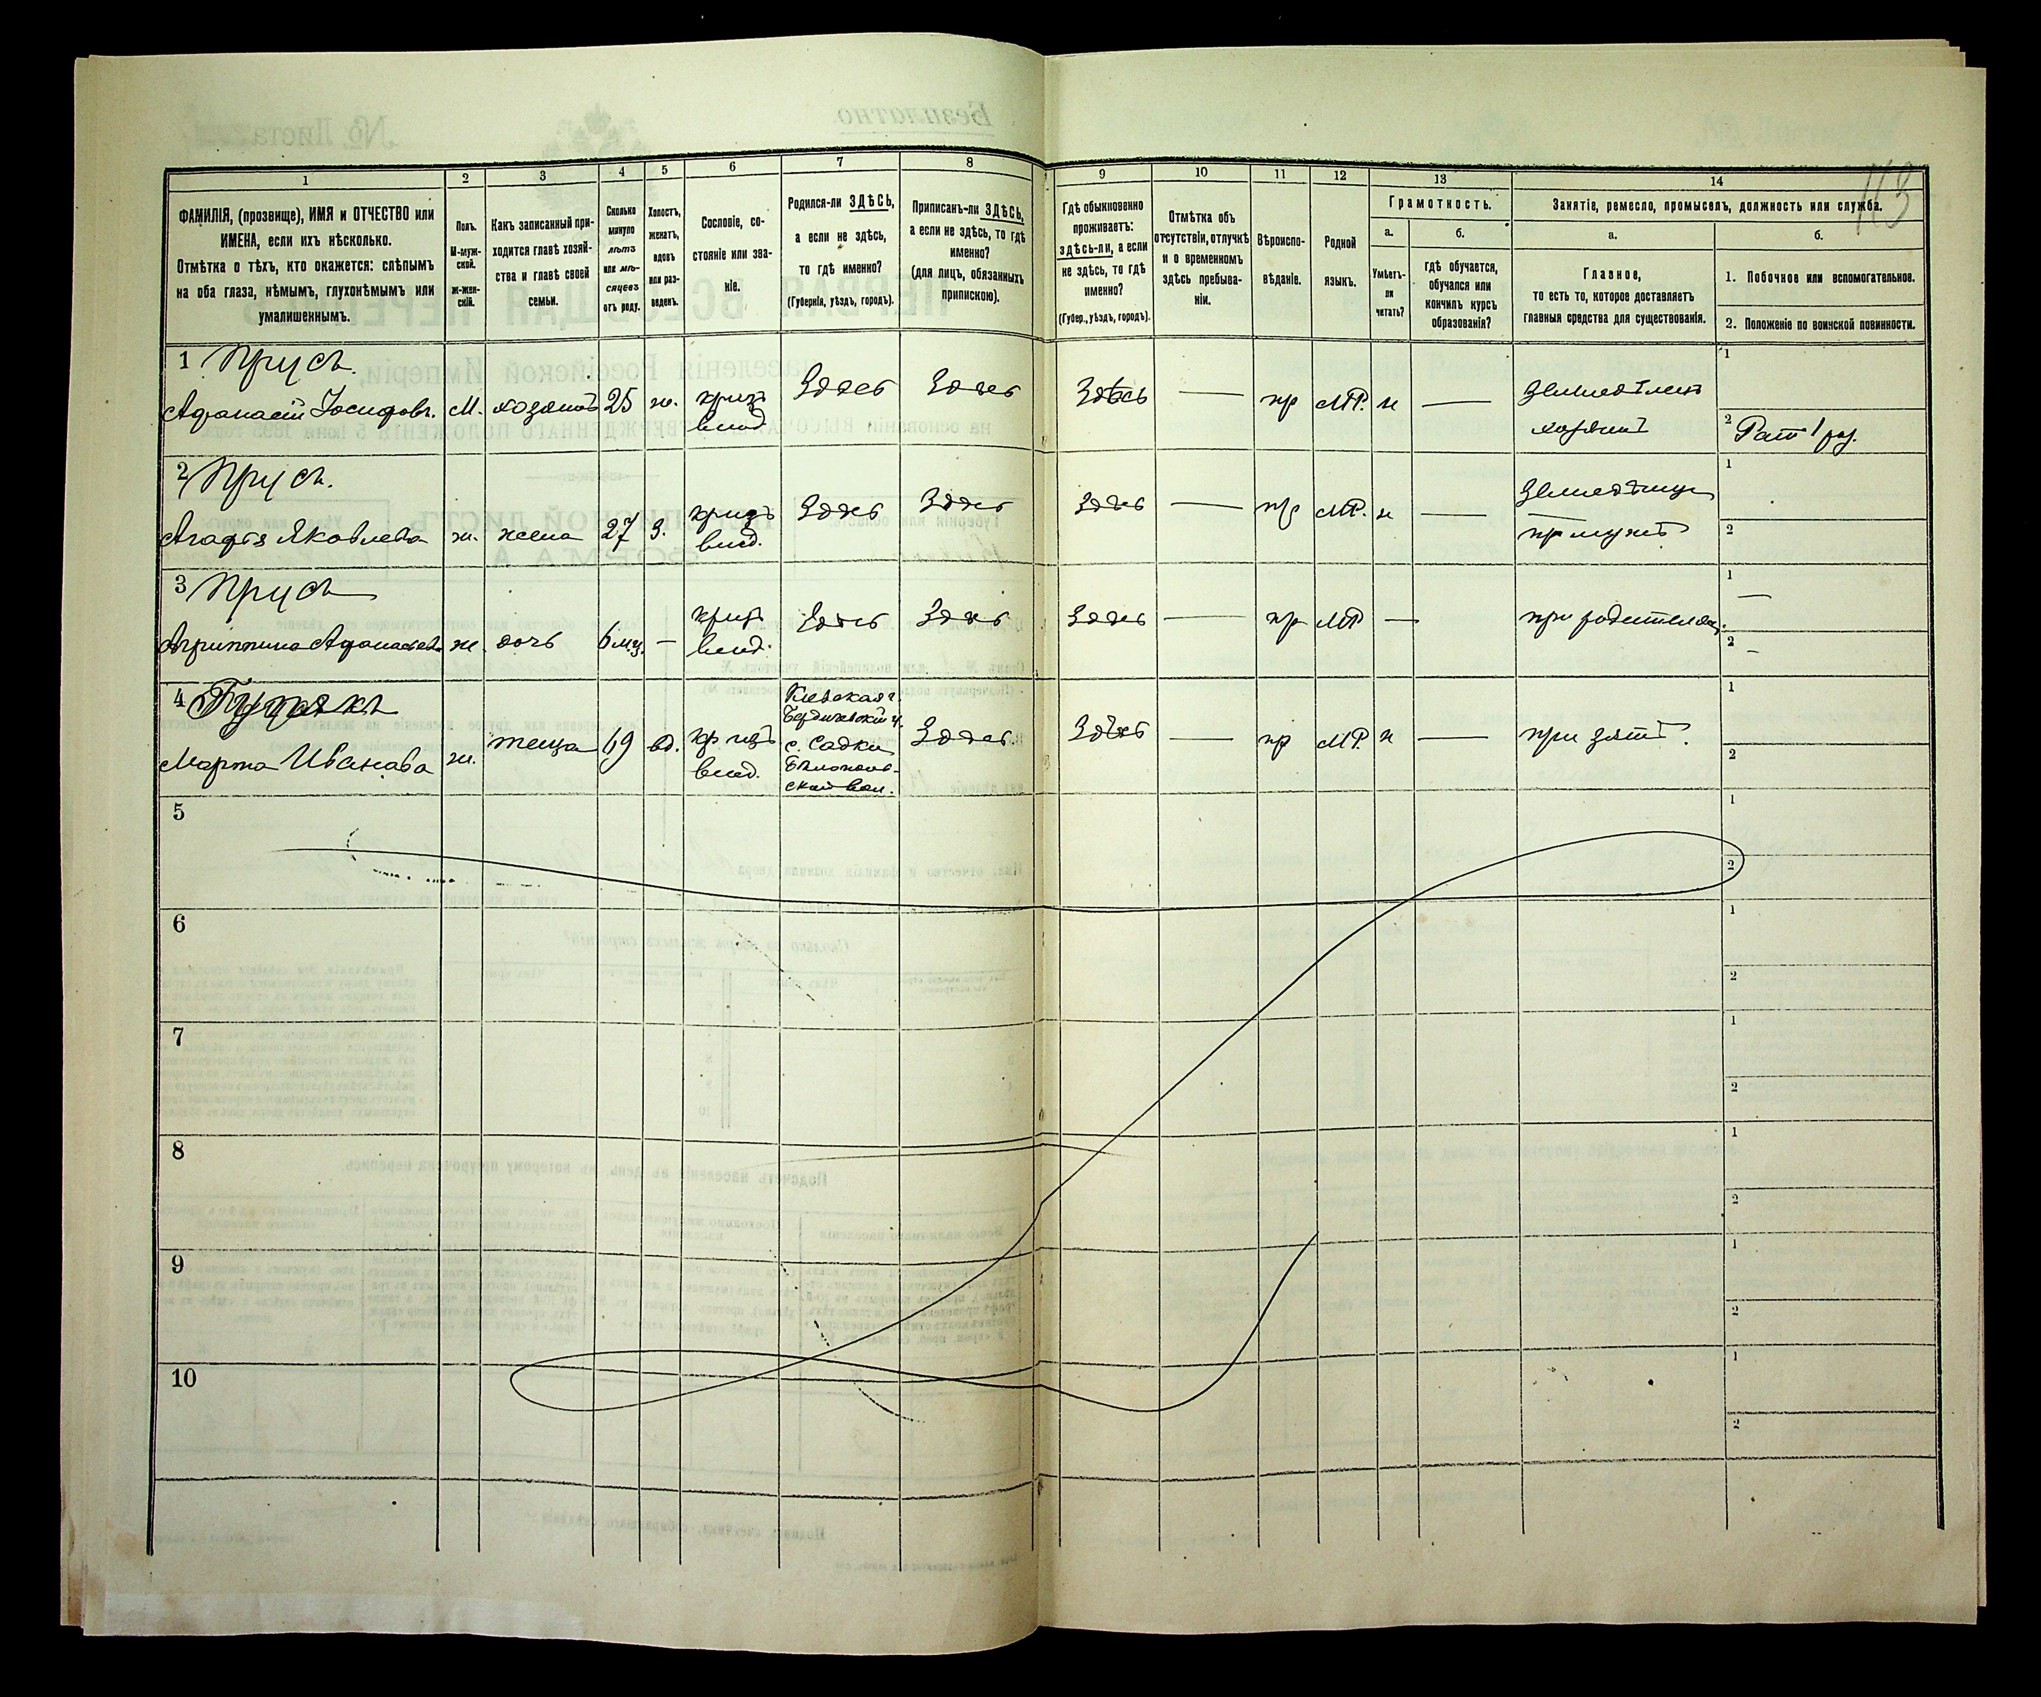 113
1 2 3 4 5 6 7 8 9 10 11 12 13 14
ФАМИЛІЯ, (прозвище), ИМЯ и ОТЧЕСТВО или
ИМЕНА, если ихъ нѣсколько.
Отмѣтка о тѣхъ, кто окажется: слѣпымъ
на оба глаза, нѣмымъ, глухонѣмымъ или
умалишеннымъ.
Полъ.
М-муж-
ской.
ж-жен-
скій.
Какъ записанный при-
ходится главѣ хозяй-
ства и главѣ своей
семьи.
Сколько
минуло
лѣтъ
или мѣ-
сяцевъ
отъ роду.
Холостъ,
женатъ,
вдовъ
или раз-
веденъ.
Сословіе, со-
стояніе или зва-
ніе.
Родился-ли ЗДѢСЬ,
а если не здѣсь,
то гдѣ именно?
(Губернія, уѣздъ, городъ).
Приписанъ-ли ЗДѢСЬ,
а если не здѣсь, то гдѣ
именно?
(для лицъ, обязанныхъ
припискою).
Гдѣ обыкновенно
проживаетъ:
здѣсь-ли, а если
не здѣсь, то гдѣ
именно?
(Губер., уѣздъ, городъ).
Отмѣтка объ
отсутствіи, отлучкѣ
и о временномъ
здѣсь пребыва-
ніи.
Вѣроиспо-
вѣданіе.
Родной
языкъ.
Грамотность.
а.
Умѣетъ-
ли
читать?
б.
гдѣ обучается,
обучался или
кончилъ курсъ
образованія?
Занятіе, ремесло, промыселъ, должность или служба.
а.
Главное,
то есть то, которое доставляетъ
главныя средства для существованія.
б.
1. Побочное или вспомогательное.
2. Положеніе по воинской повинности.
1 Прусъ.
Афанасій Іосифовъ. М. хозяинъ 25 ж. кр. изъ влад. Здѣсь Здѣсь Здѣсь — пр МР. н — Земледѣлецъ хозяинъ
1
2 Рат 1 раз.
2 Прусъ.
Агафія Яковлева ж. жена 27 з. кр. изъ влад. Здѣсь Здѣсь Здѣсь — пр МР. н — при мужѣ
1
2
3 Прусъ
Агриппина Афанасьева ж. дочь 6 мц. — кр. изъ влад. Здѣсь Здѣсь Здѣсь — пр МР — при родителяхъ.
1 —
2 —
4
Марта Иванова ж. теща 69 вд. кр. изъ влад. Кіевская г. Бердичевскій у. с. Садки Здѣсь. Здѣсь — пр МР. н — при зятѣ.
1
2
5
1
2
6
1
2
7
1
2
8
1
2
9
1
2
10
1
2